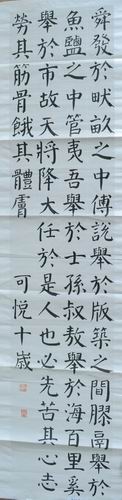 舜發於畎畝之中傅說舉於版築之間膠鬲舉於
魚鹽之中管夷吾舉於士孫叔敖舉於海百里奚
舉於市故天將降大任於是人也必先苦其心志
勞其筋骨餓其體膚
可悅十歲